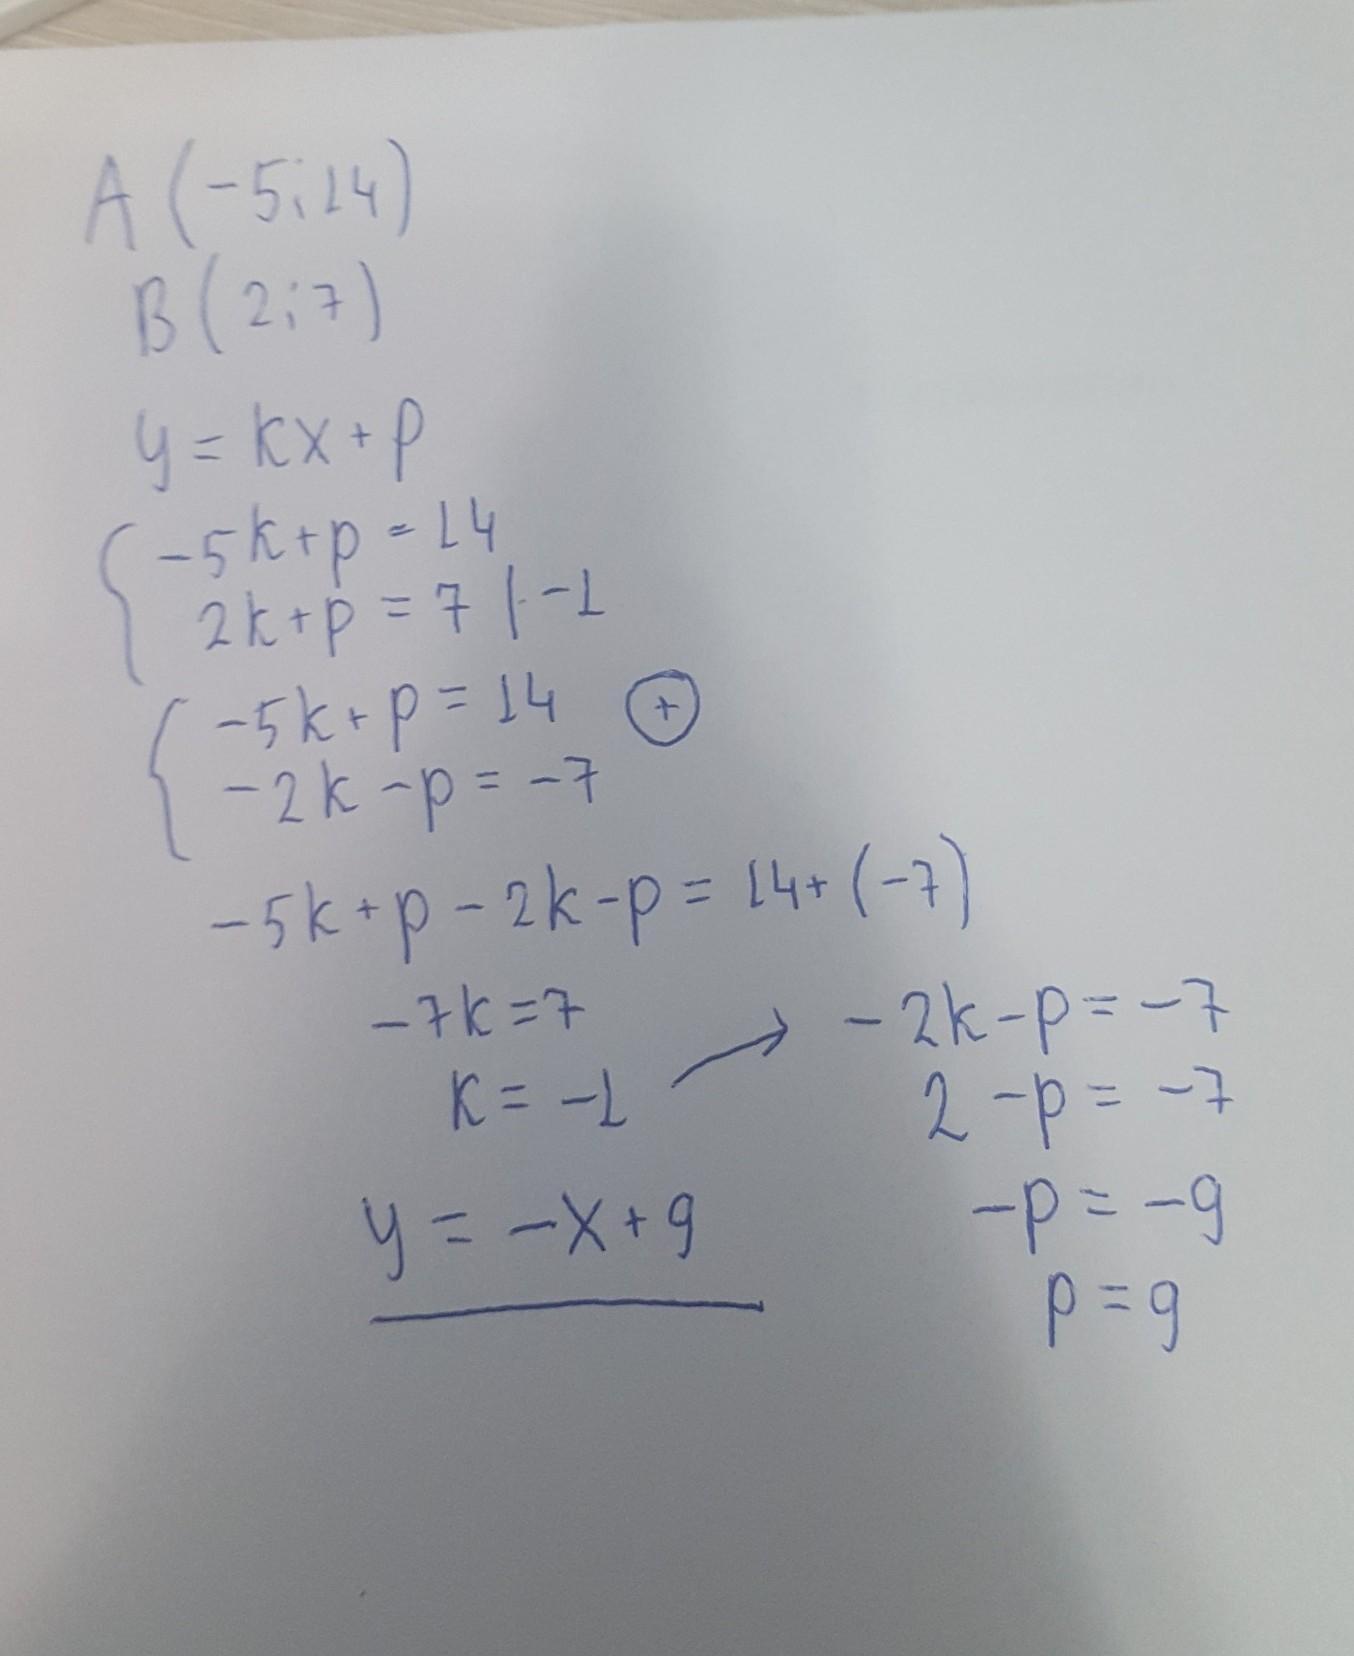 A (-5;14)
B (2;7)
y = kx + p
-5k + p = 14
2k + p = 7 | · -1
-5k + p = 14 ⊕
-2k - p = -7
-5k + p - 2k - p = 14 + (-7)
-7k = 7
k = -1 →
-2k - p = -7
2 - p = -7
-p = -9
p = 9
y = -x + 9